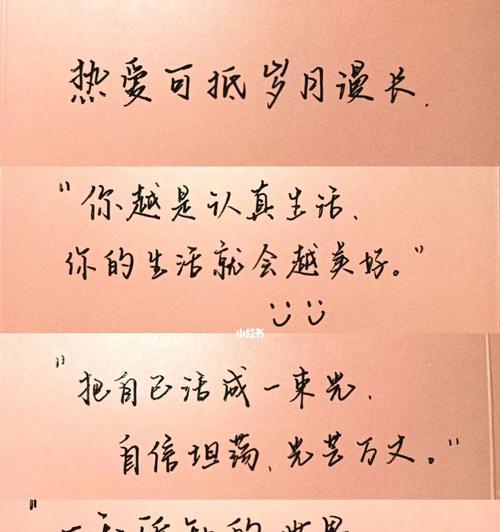 热爱可抵岁月漫长.
"你越是认真生活,
你的生活就会越美好。"
小红书
"把自己活成一束光,
自信坦荡,光芒万丈。"
"
的世界